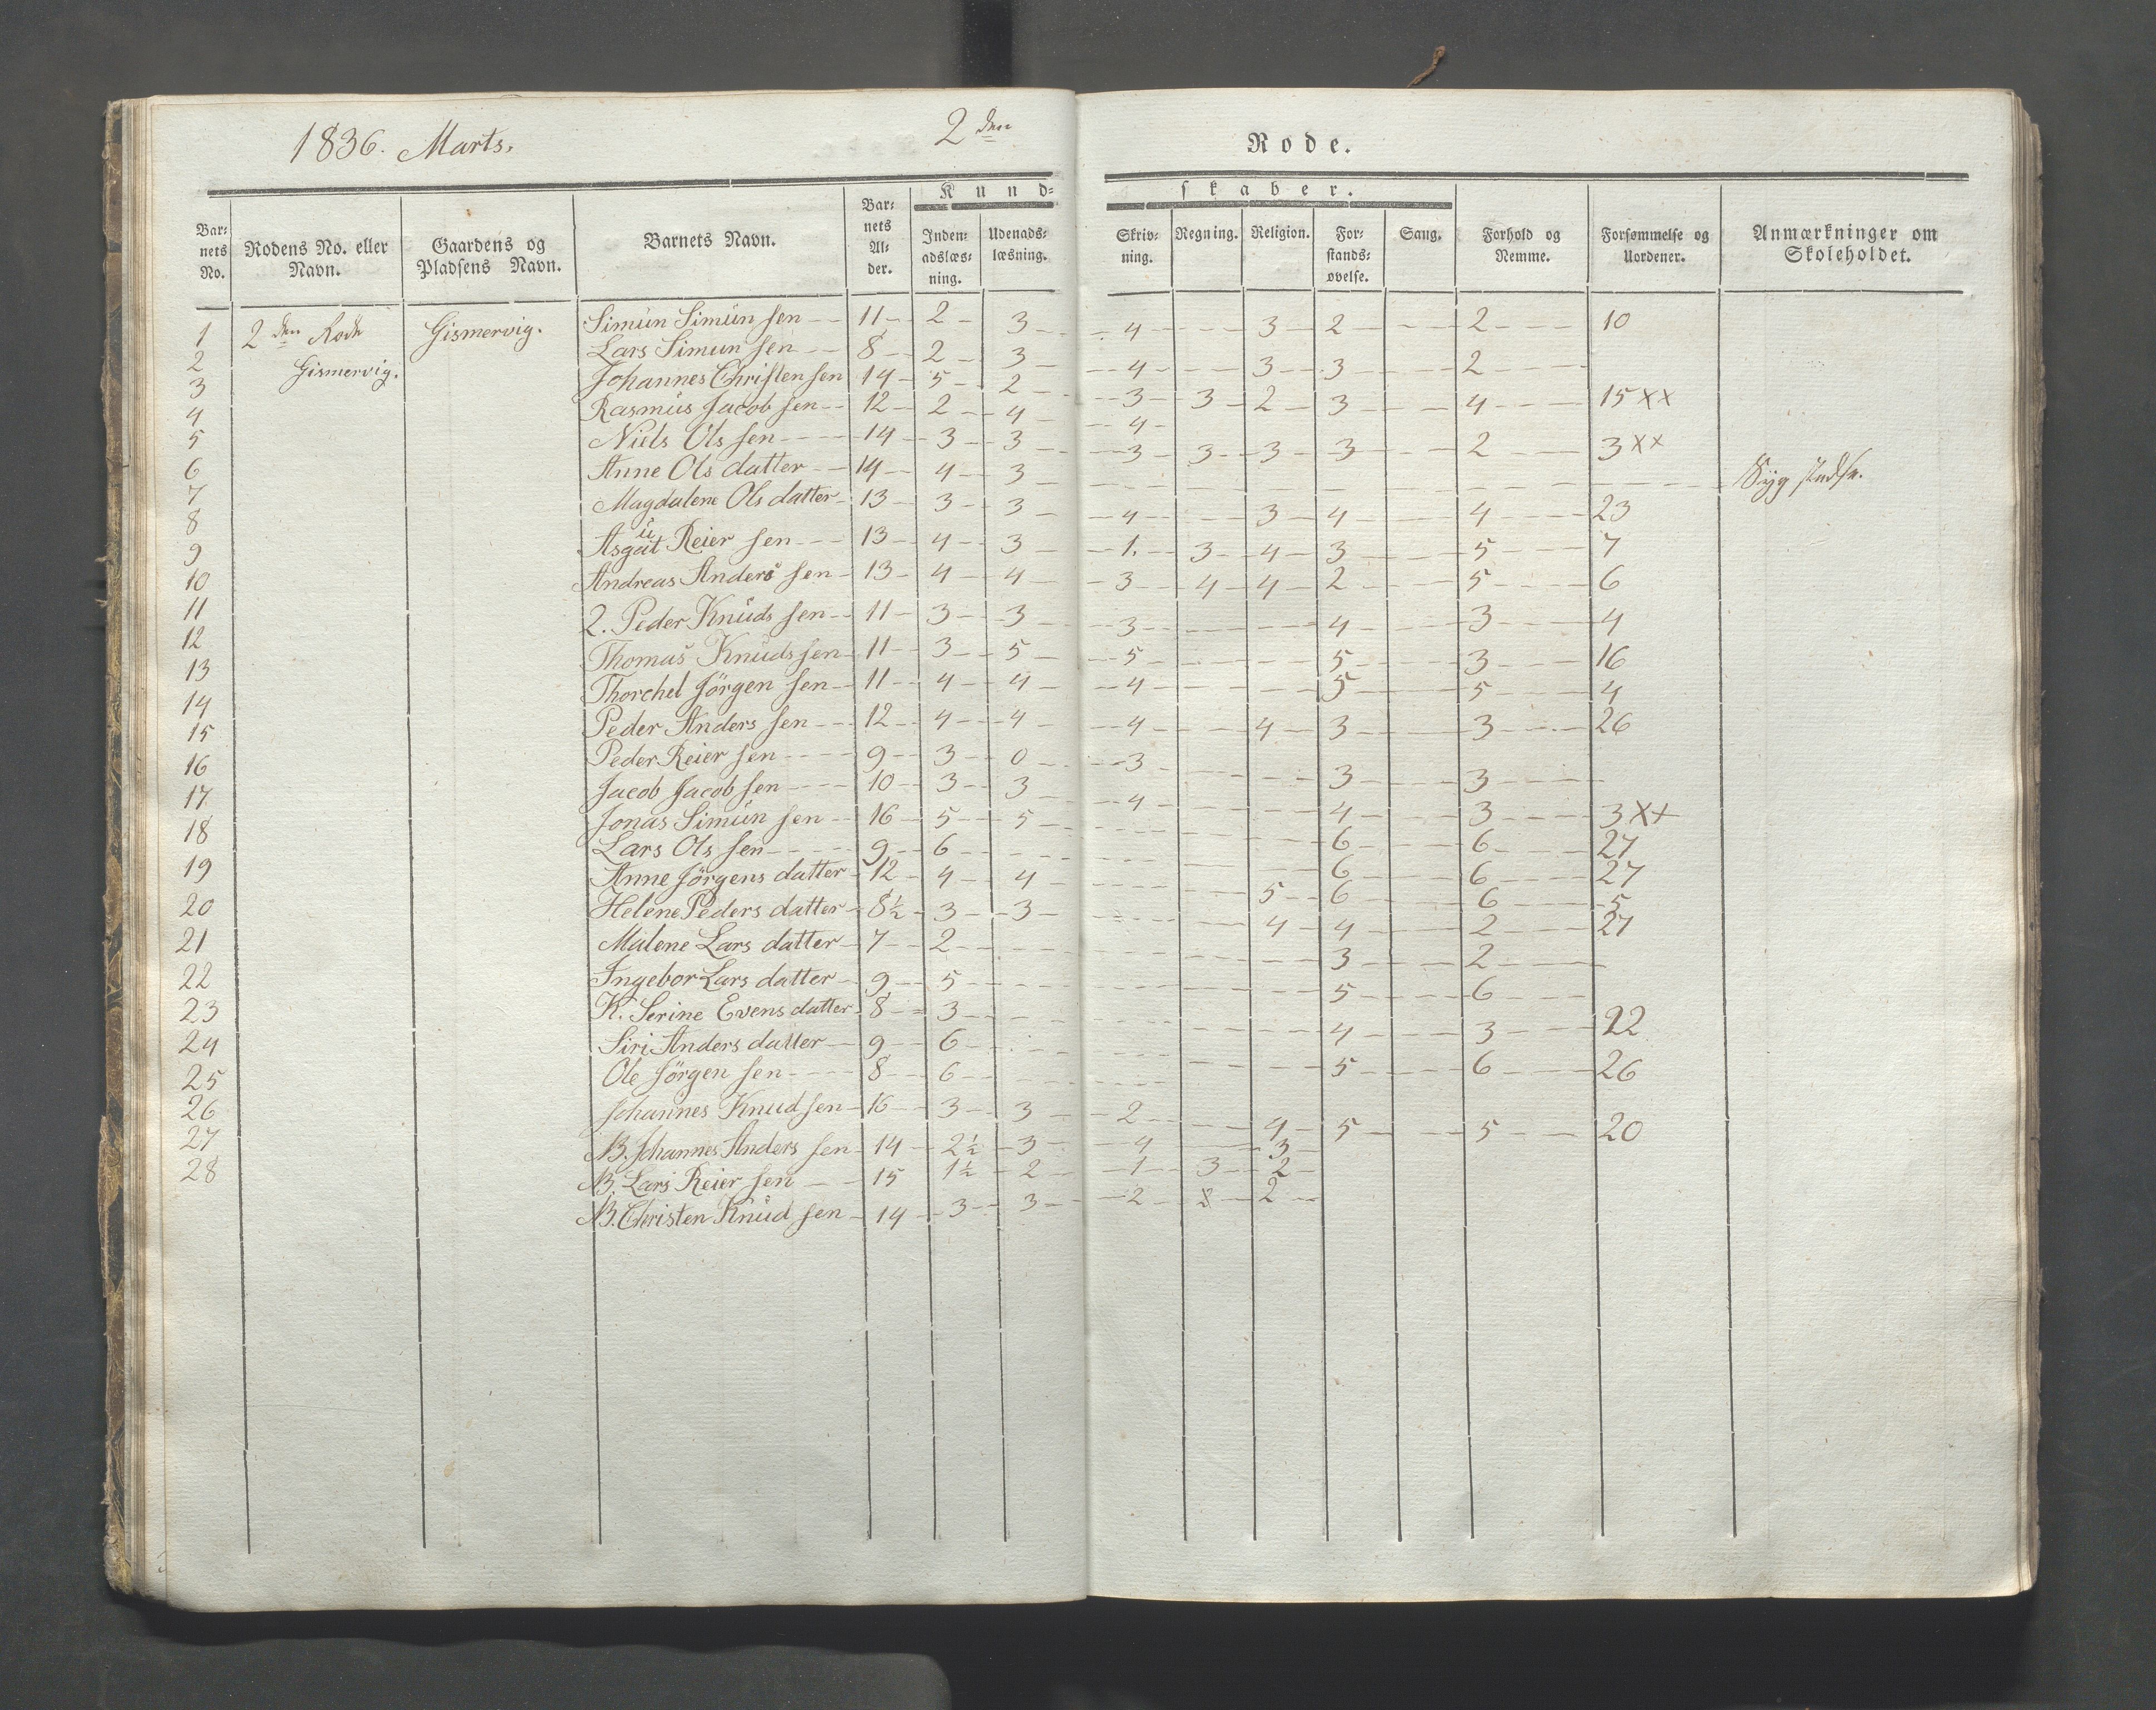 1836. Marts.
2den Rode.
Kundskaber.
Barnets No. | Rodens No. eller Navn. | Gaardens og Pladsens Navn. | Barnets Navn. | Barnets Alder. | Indenadslæsning. | Udenadslæsning. | Skrivning. | Regning. | Religion. | Forstandsøvelse. | Sang. | Forhold og Nemme. | Forsømmelse og Uordener. | Anmærkninger om Skoleholdet.
1 2den Rode Gismervig. Simùn Simùnsen 11 2 3 4 3 2 2 10
2 Gismervig. Lars Simunsen 8 2 3 4 3 3 2
3 Johannes Christensen 14 5 2 3 3 2 3 4 15 xx
4 Rasmùs Jacobsen 12 2 4 4
5 Niels Olssen 14 3 3 3 3 3 3 2 3 xx
6 Anne Olsdatter 14 4 3 Syg
7 Magdalene Olsdatter 13 3 3 4 3 4 4 23
8 Reiersen 13 4 3 1. 3 4 3 5 7
9 Andreas Anderssen 13 4 4 3 4 4 2 5 6
10 2. Peder Knùdssen 11 3 3 3 4 3 4
11 Thomas Knùdssen 11 3 5 5 5 3 16
12 Thorchel Jörgensen 11 4 4 4 5 5 4
13 Peder Anderssen 12 4 4 4 4 3 3 26
14 Peder Reiersen 9 3 0 3 3 3
15 Jacob Jacobsen 10 3 3 4 4 3 3 xx
16 Jonas Simùnsen 16 5 5 6 6 27
17 Lars Olssen 9 6 6 6 27
18 Anne Jörgensdatter 12 4 4 5 6 6 5
19 Helene Pedersdatter 8½ 3 3 4 4 2 27
20 Malene Larsdatter 7 2 3 2
21 Ingebor Larsdatter 9 5 5 6
22 K. Serine Evensdatter 8 3 4 3 22
23 Siri Andersdatter 9 6 5 6 26
24 Ole Jörgensen 8 6
25 Johannes Knudsen 16 3 3 2 4 5 5 20
26 NB. Johannes Anderssen 14 2½ 3 4 3
27 NB. Lars Reiersen 15 1½ 2 1 3 2
28 NB. Christen Knùdsen 14 3 3 2 2